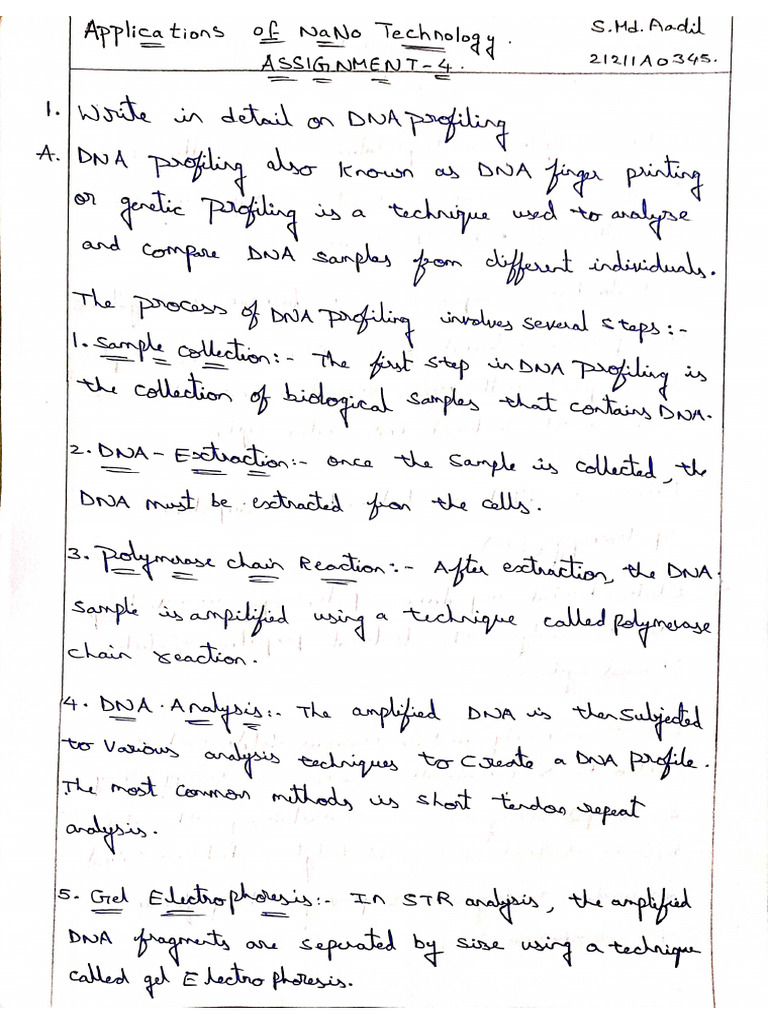 Applications of NaNo Technology.
S.Md. Aadil
ASSIGNMENT-4.
21211A0345.
1. Write in detail on DNA profiling
A. DNA profiling also known as DNA finger printing
or genetic profiling is a technique used to analyse
and compare DNA samples from different individuals.
The process of DNA profiling involves several steps:-
1. Sample collection:- The first step in DNA profiling is
the collection of biological samples that contains DNA.
2. DNA - Extraction:- once the sample is collected, the
DNA must be extracted from the cells.
3. Polymerase chain Reaction:- After extraction, the DNA
sample is ampilified using a technique called polymerase
chain reaction.
4. DNA. Analysis:- The amplified DNA is then subjected
to various analysis techniques to create a DNA profile.
The most common methods is short tendon repeat
analysis.
5. Gel Electrophoresis:- In STR analysis, the amplified
DNA fragments are seperated by sise using a technique
called gel Electrophoresis.